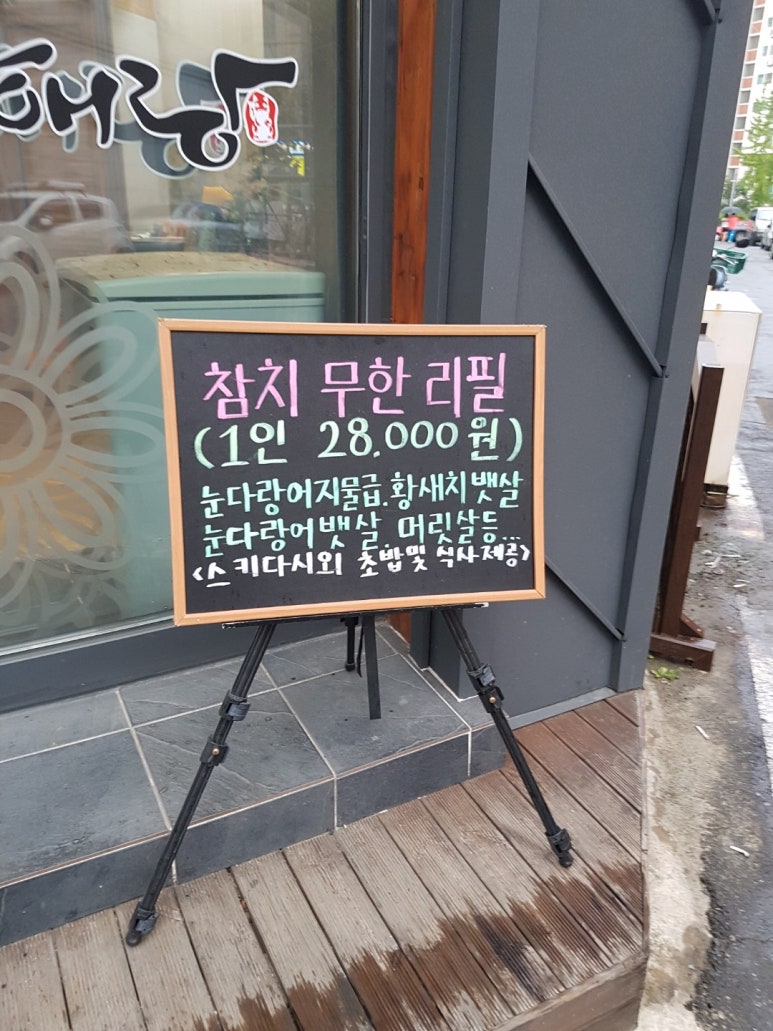 해랑
참치 무한 리필
(1인 28.000원)
눈다랑어지물급.황새치뱃살
눈다랑어뱃살.머릿살등...
<스키다시외 초밥및 식사제공>